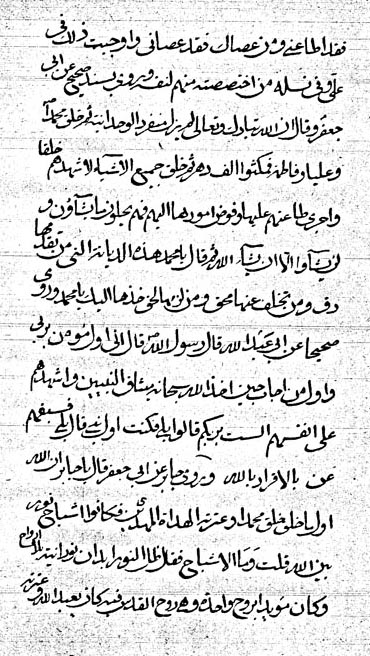 فقد اطاعني ومن عصاك فقد عصاني واوجبت ذلك في
علي وفي نسله من اختصصته منهم لنفسي وروي بسند صحيح عن ابي
جعفر قال ان الله تبارك وتعالى لم يزل متفردا بالوحدانية ثم خلق محمدا
وعليا وفاطمة فمكثوا الف دهر ثم خلق جميع الاشياء لاشهدهم خلقا
واجرى طاعتهم عليها وفوض امورها اليهم فهم يحلون ما يشاؤن و
لن يشاؤا الا ان يشاء الله ثم قال يا محمد هذه الديانة التي من تقدمها
رق ومن تخلف عنها محق ومن لزمها لحق خذها اليك يا محمد وروي
صحيحا عن ابي عبد الله قال رسول الله قال اني اول مؤمن بربي
واول من اجاب حين اخذ الله سبحانه ميثاق النبيين واشهدهم
على انفسهم الست بربكم قالوا بلى فكنت اول من قال بلى فسبقهم
عن بالاقرار بالله وروى جابر عن ابي جعفر قال يا جابر ان الله
اول ما خلق خلق محمدا وعترته الهداة المهديين فكانوا اشباح نور
بين الله قلت وما الاشباح فقال ظل النور ابدان نورانية بلا ارواح
وكان مؤيدا بروح واحدة وهي روح القدس فبه كان يعبد الله وعترته